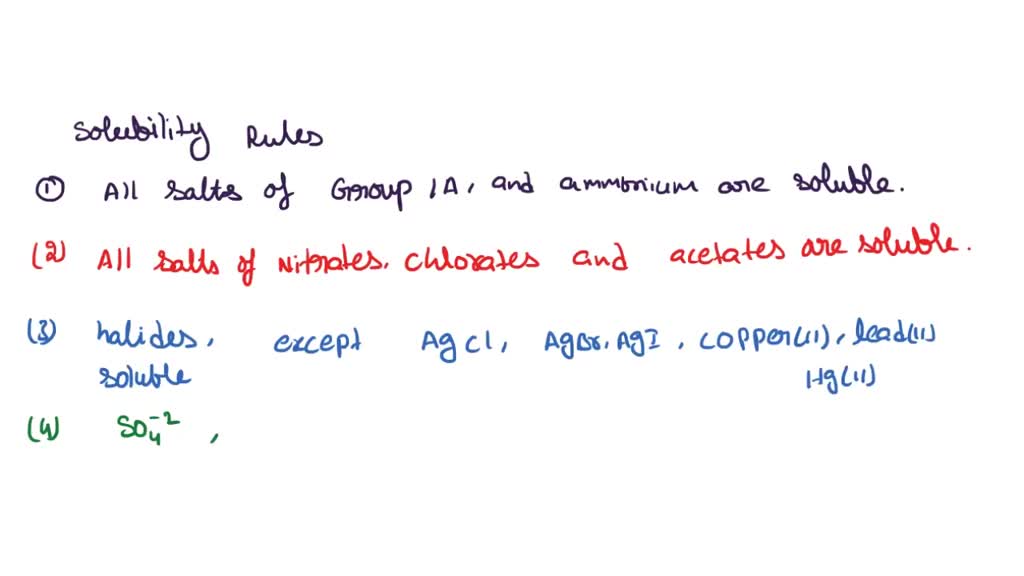 Solubility Rules
① All salts of Group 1A, and ammonium are soluble.
(2) All salts of Nitrates, chlorates and acetates are soluble.
(3) halides, except AgCl, AgBr, AgI, copper(11), lead(11)
soluble Hg(11)
(4) SO₄⁻²,